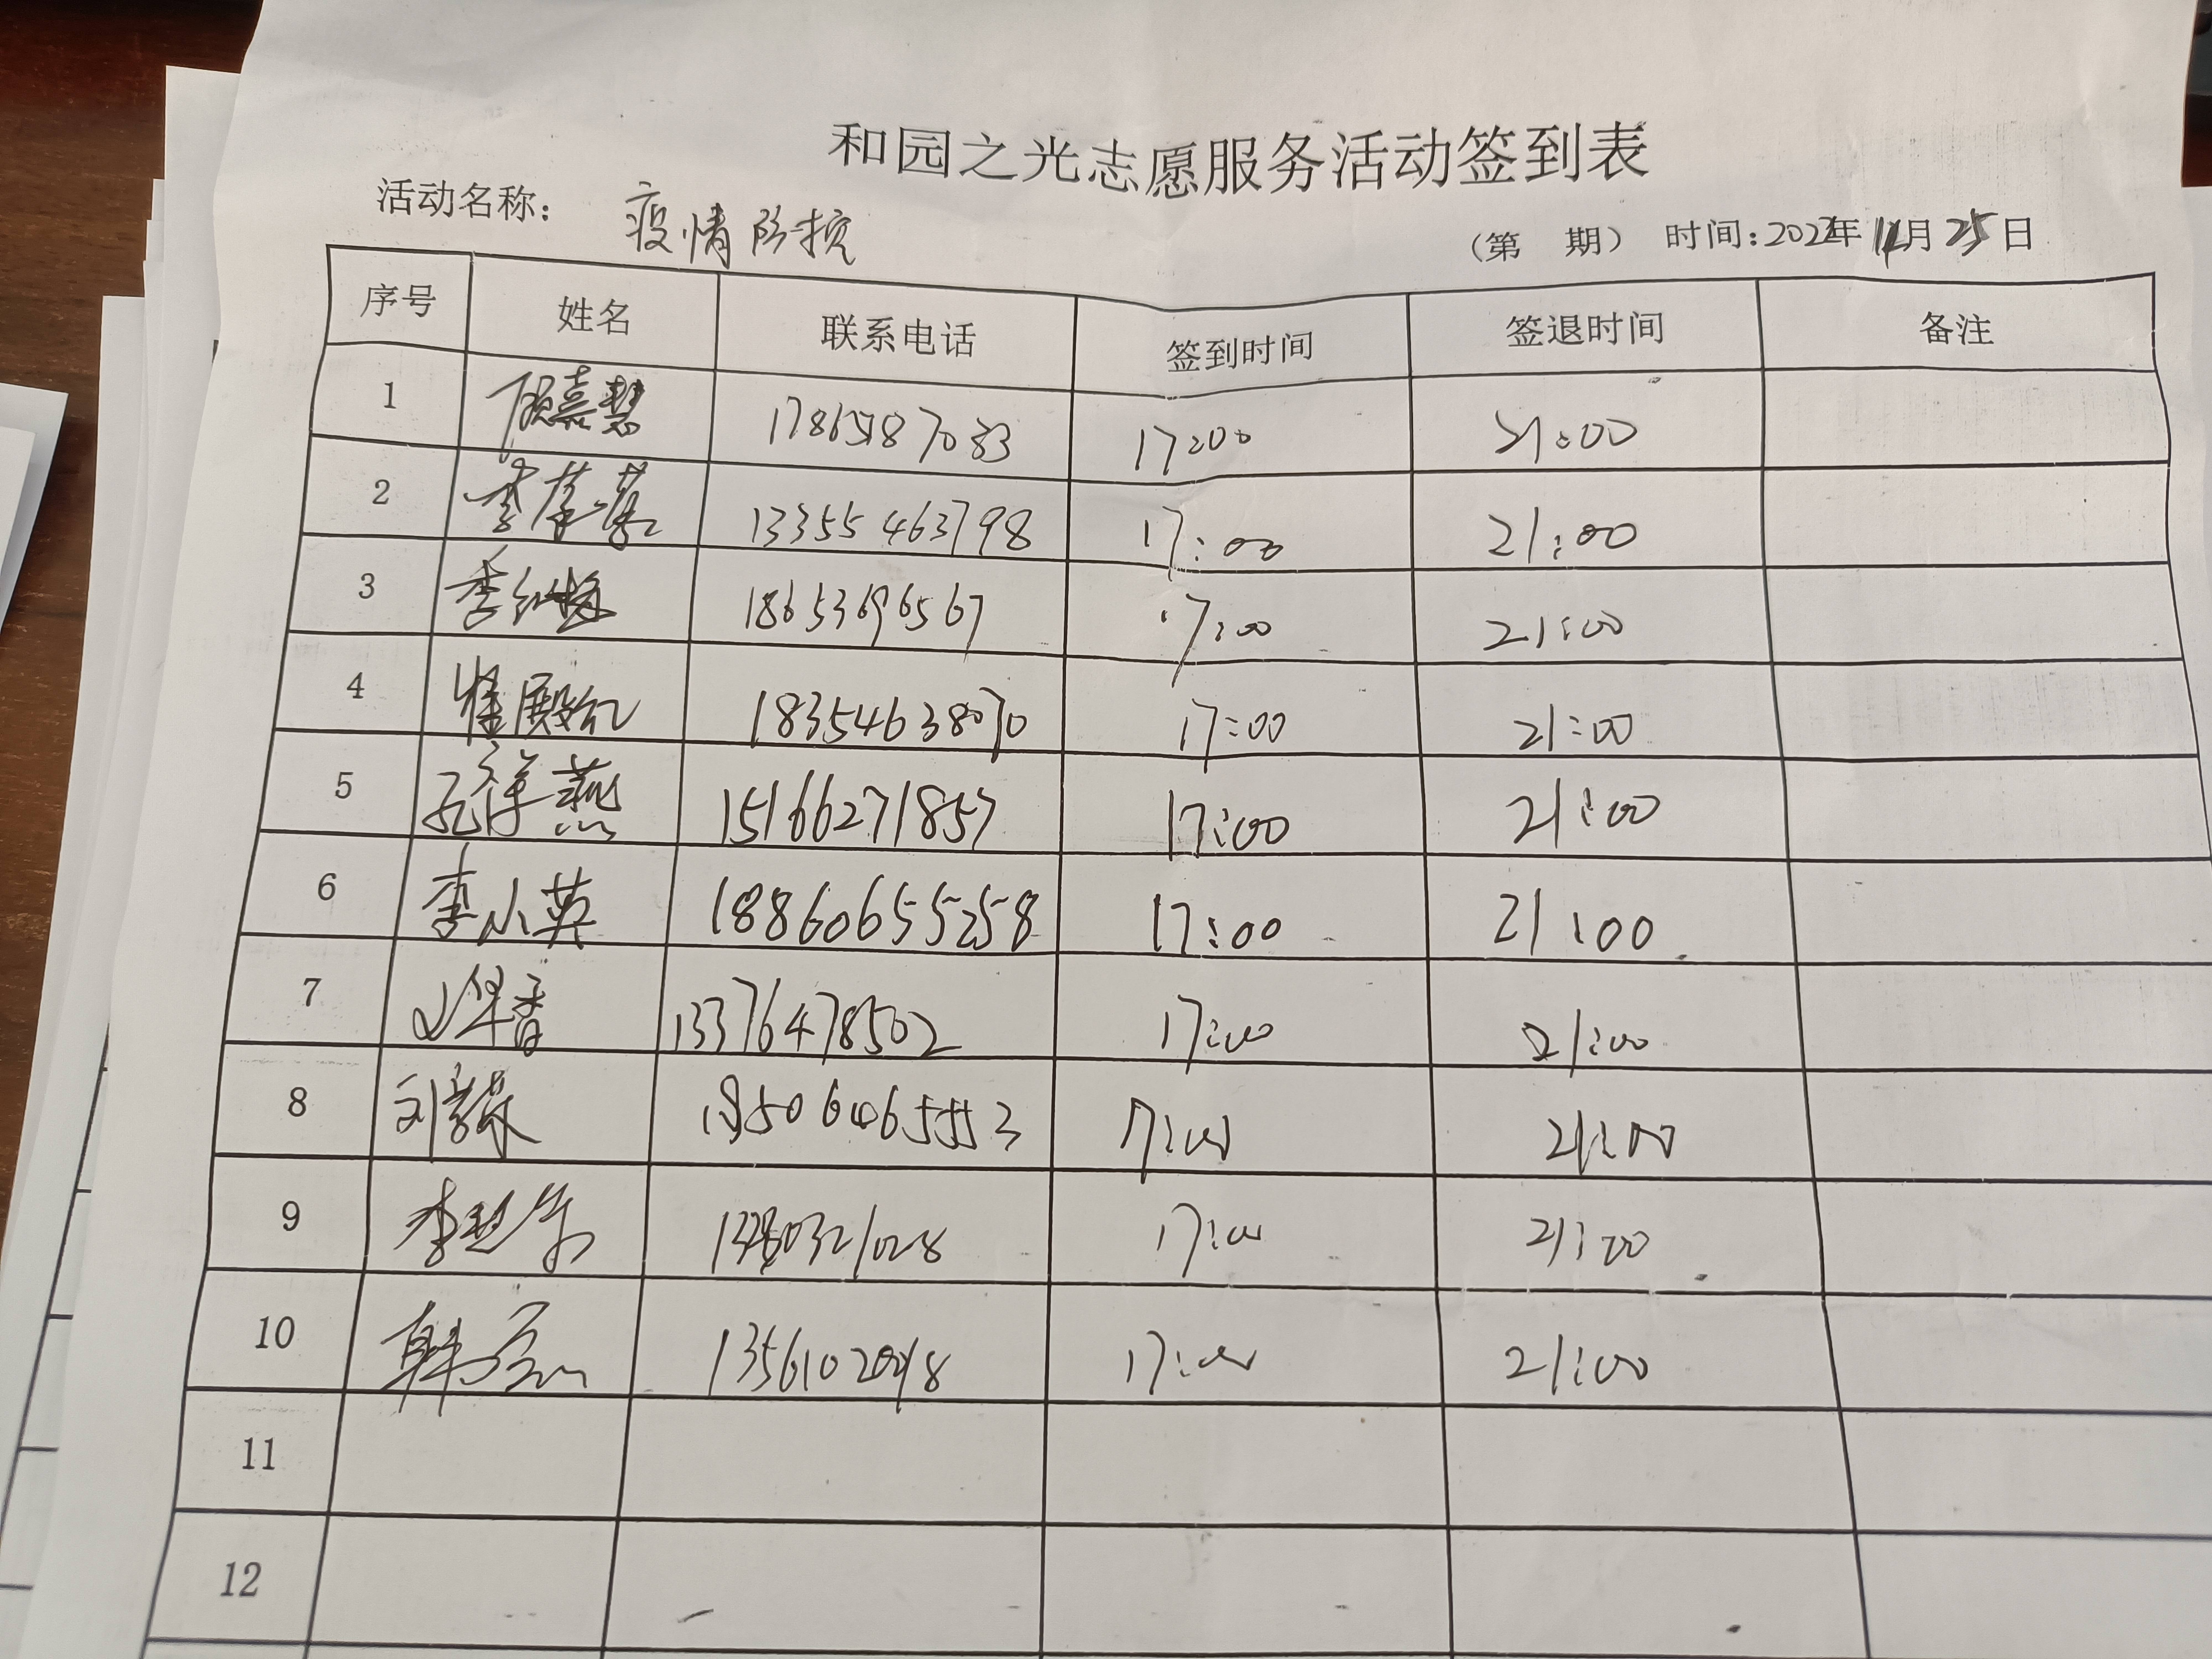 和园之光志愿服务活动签到表
活动名称: 疫情防控 (第 期) 时间:2022年11月25日
序号 姓名 联系电话 签到时间 签退时间 备注
1 顾嘉慧 17865187033 17:00 21:00
2 李 13355463798 17:00 21:00
3 李红梅 18653696567 17:00 21:00
4 崔殿红 18354638070 17:00 21:00
5 孔祥燕 15166271857 17:00 21:00
6 李小英 18860655258 17:00 21:00
7 13376478502 17:00 21:00
8 刘 18506465553 17:00 21:00
9 李 17:00 21:00
10 韩 17:00 21:00
11
12